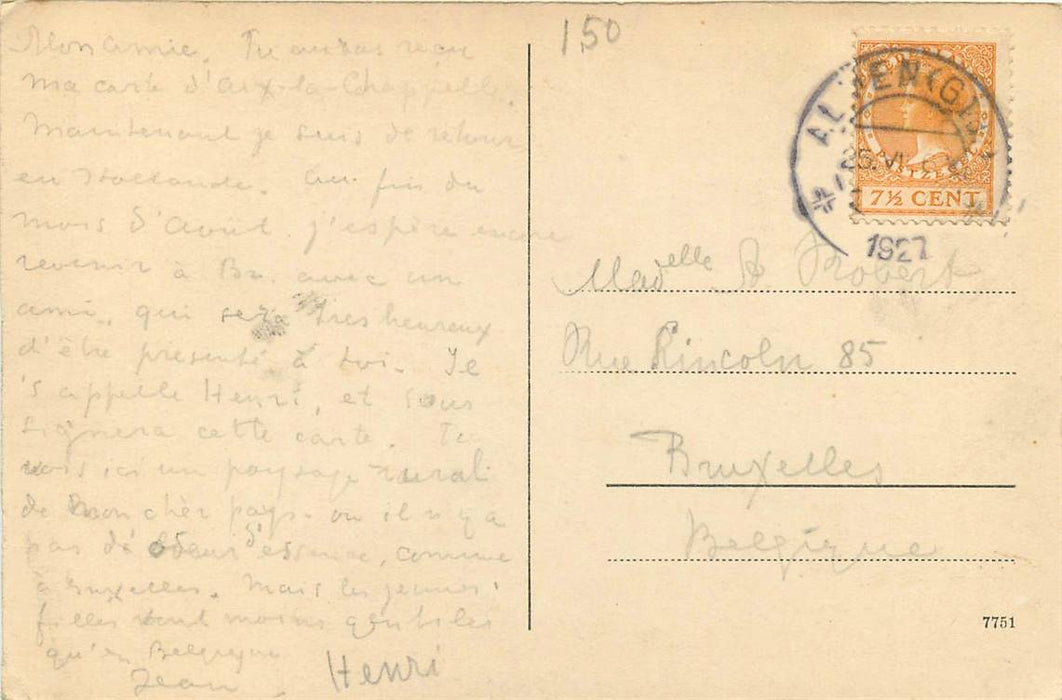 Mon amie, Tu auras reçu
ma carte d'Aix-la-Chappelle.
Maintenant je suis de retour
en Hollande. Au fin du
mois d'Aout j'espère encore
revenir à Br. avec un
ami, qui sera très heureux
d'être presenté à toi. Je
s'appelle Henri, et sous
signera cette carte. Tu
vois ici un paysage rural
de mon chèr pays. ou il n'y a
pas d'odeur d'essence, comme
à Bruxelles. Mais les jeunes
filles sont moins gentiles
qu'en Belgique
Jean Henri
150
ALMEN (G)
25.VI
1927
7½ CENT
Madelle A Robert
Rue Lincoln 85
Bruxelles
Belgique
7751